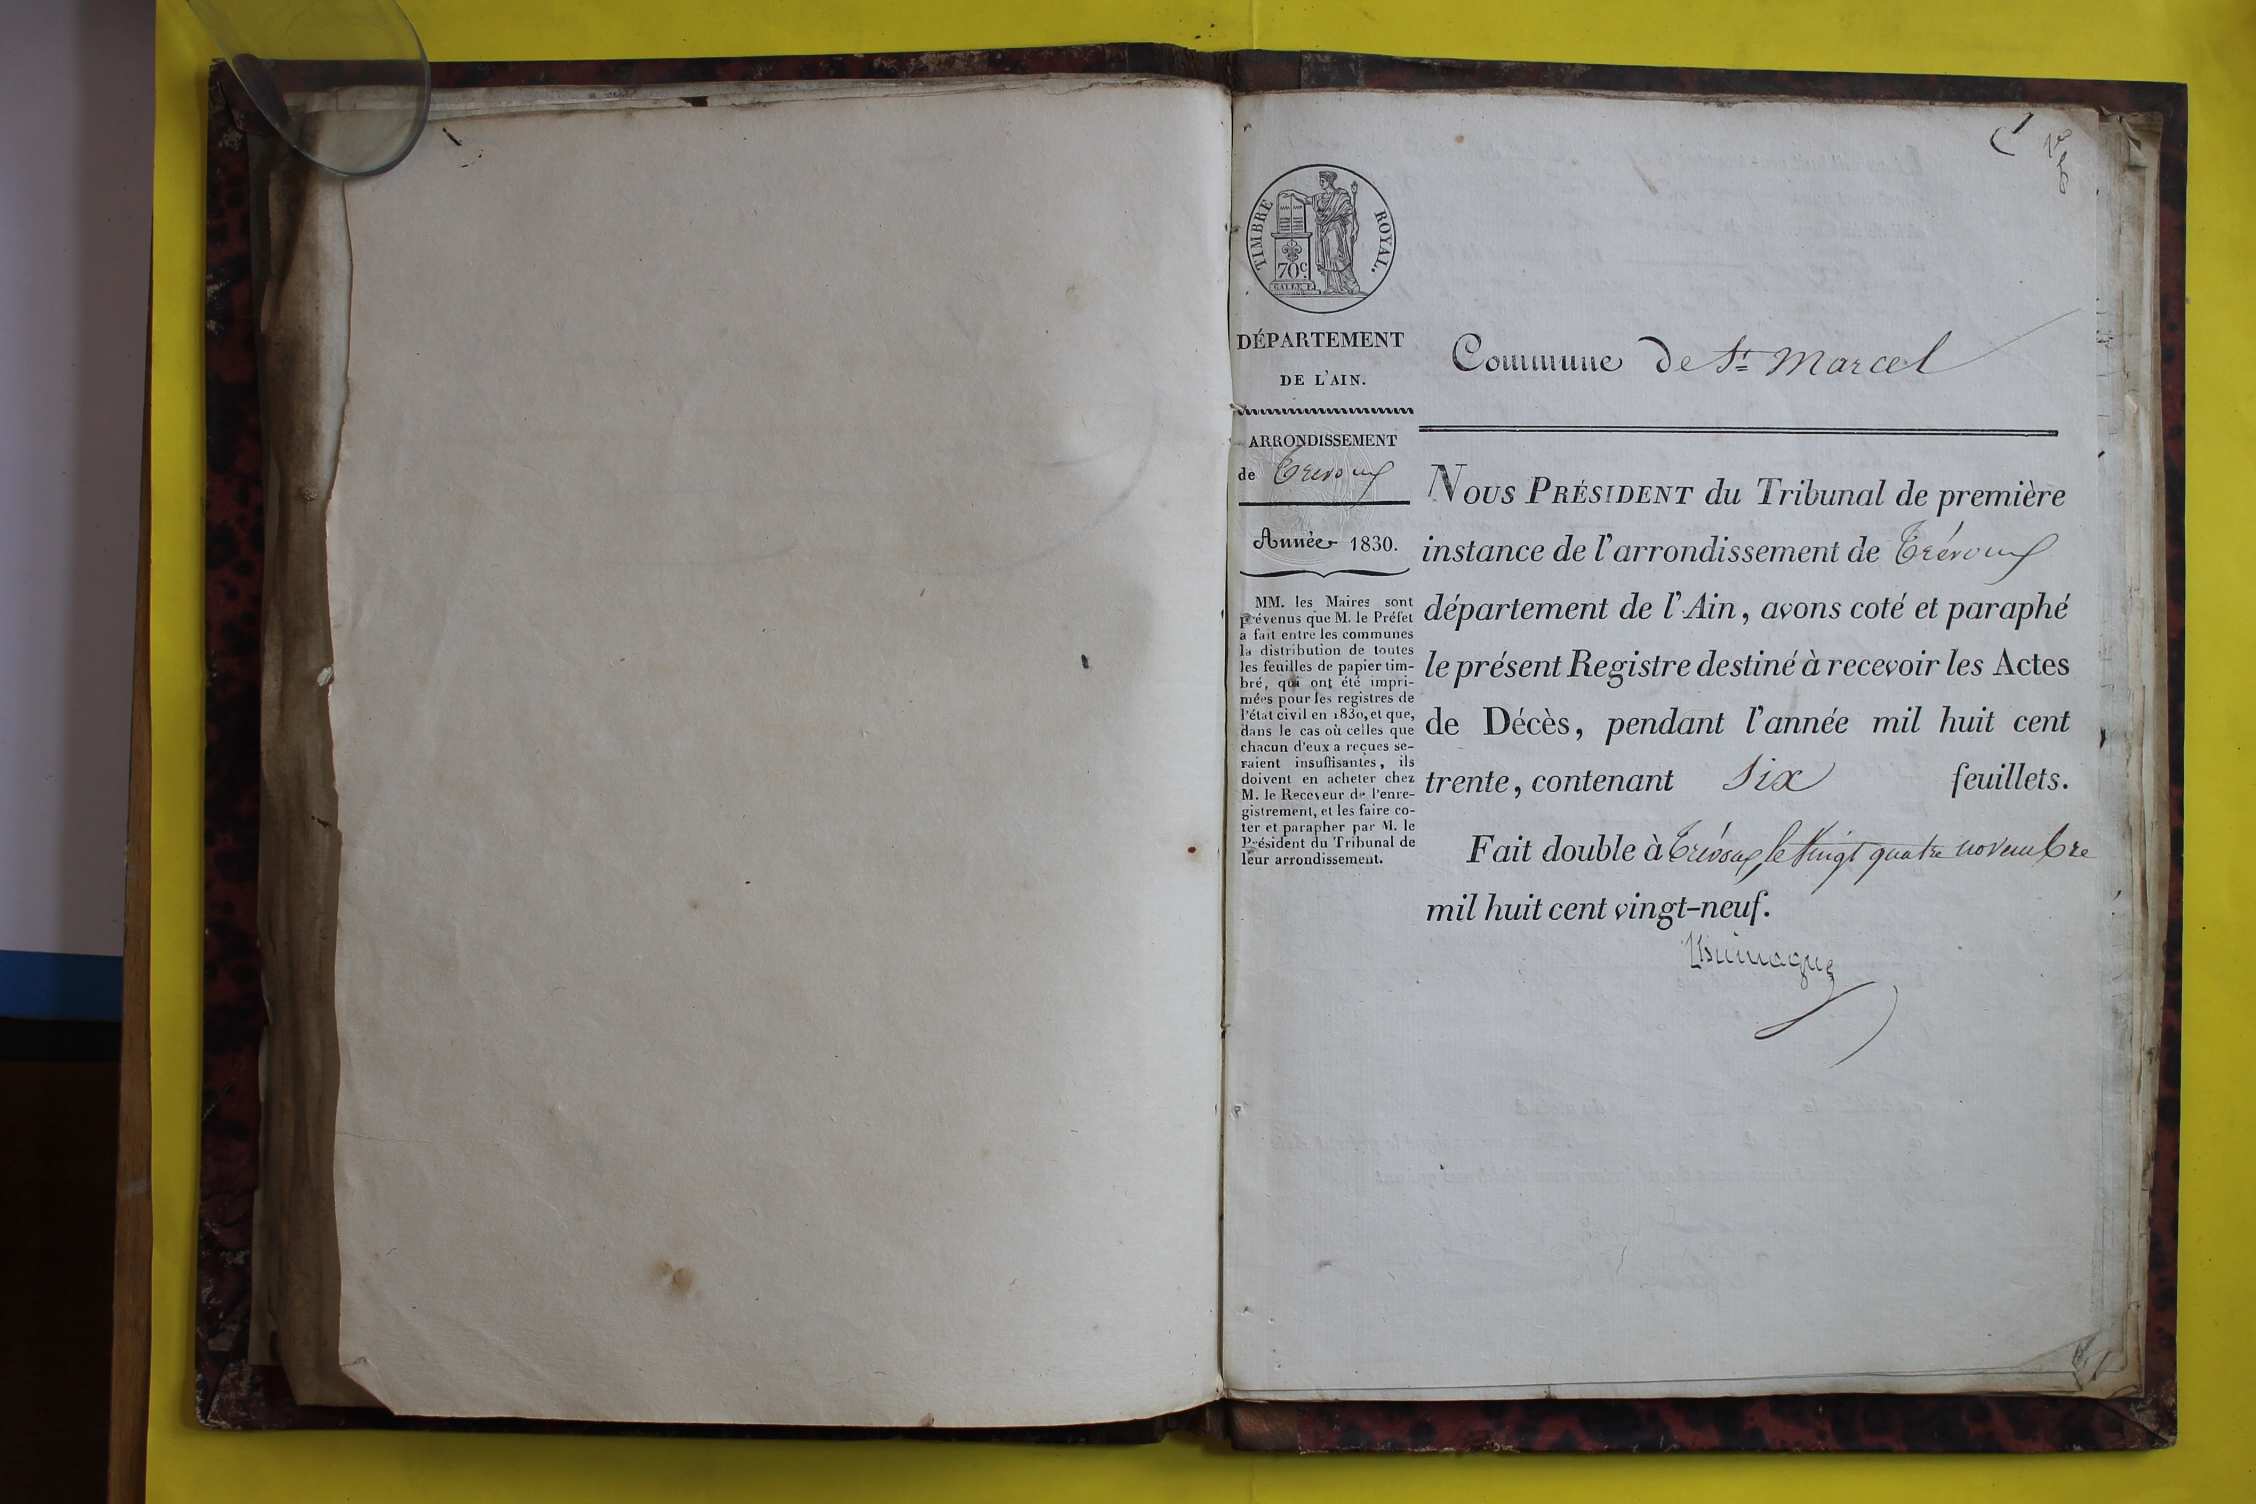 1
TIMBRE ROYAL.
70c.
DÉPARTEMENT
DE L'AIN.
ARRONDISSEMENT
de Trévoux
Année 1830.
MM. les Maires sont
prévenus que M. le Préfet
a fait entre les communes
la distribution de toutes
les feuilles de papier tim-
bré, qui ont été impri-
mées pour les registres de
l'état civil en 1830, et que,
dans le cas où celles que
chacun d'eux a reçues se-
raient insuffisantes, ils
doivent en acheter chez
M. le Receveur de l'enre-
gistrement, et les faire co-
ter et parapher par M. le
Président du Tribunal de
leur arrondissement.
Commune de St Marcel
NOUS PRÉSIDENT du Tribunal de première
instance de l'arrondissement de Trévoux
département de l'Ain, avons coté et paraphé
le présent Registre destiné à recevoir les Actes
de Décès, pendant l'année mil huit cent
trente, contenant six feuillets.
Fait double à Trévoux le vingt quatre novembre
mil huit cent vingt-neuf.